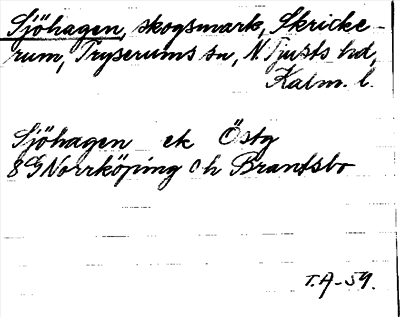 Sjöhagen, skogsmark, Skricke-
rum, Tryserums sn, N Tjusts hd,
Kalm. l.
Sjöhagen ek Östg
8G Norrköping 0h Brantsbo
T.A-59.